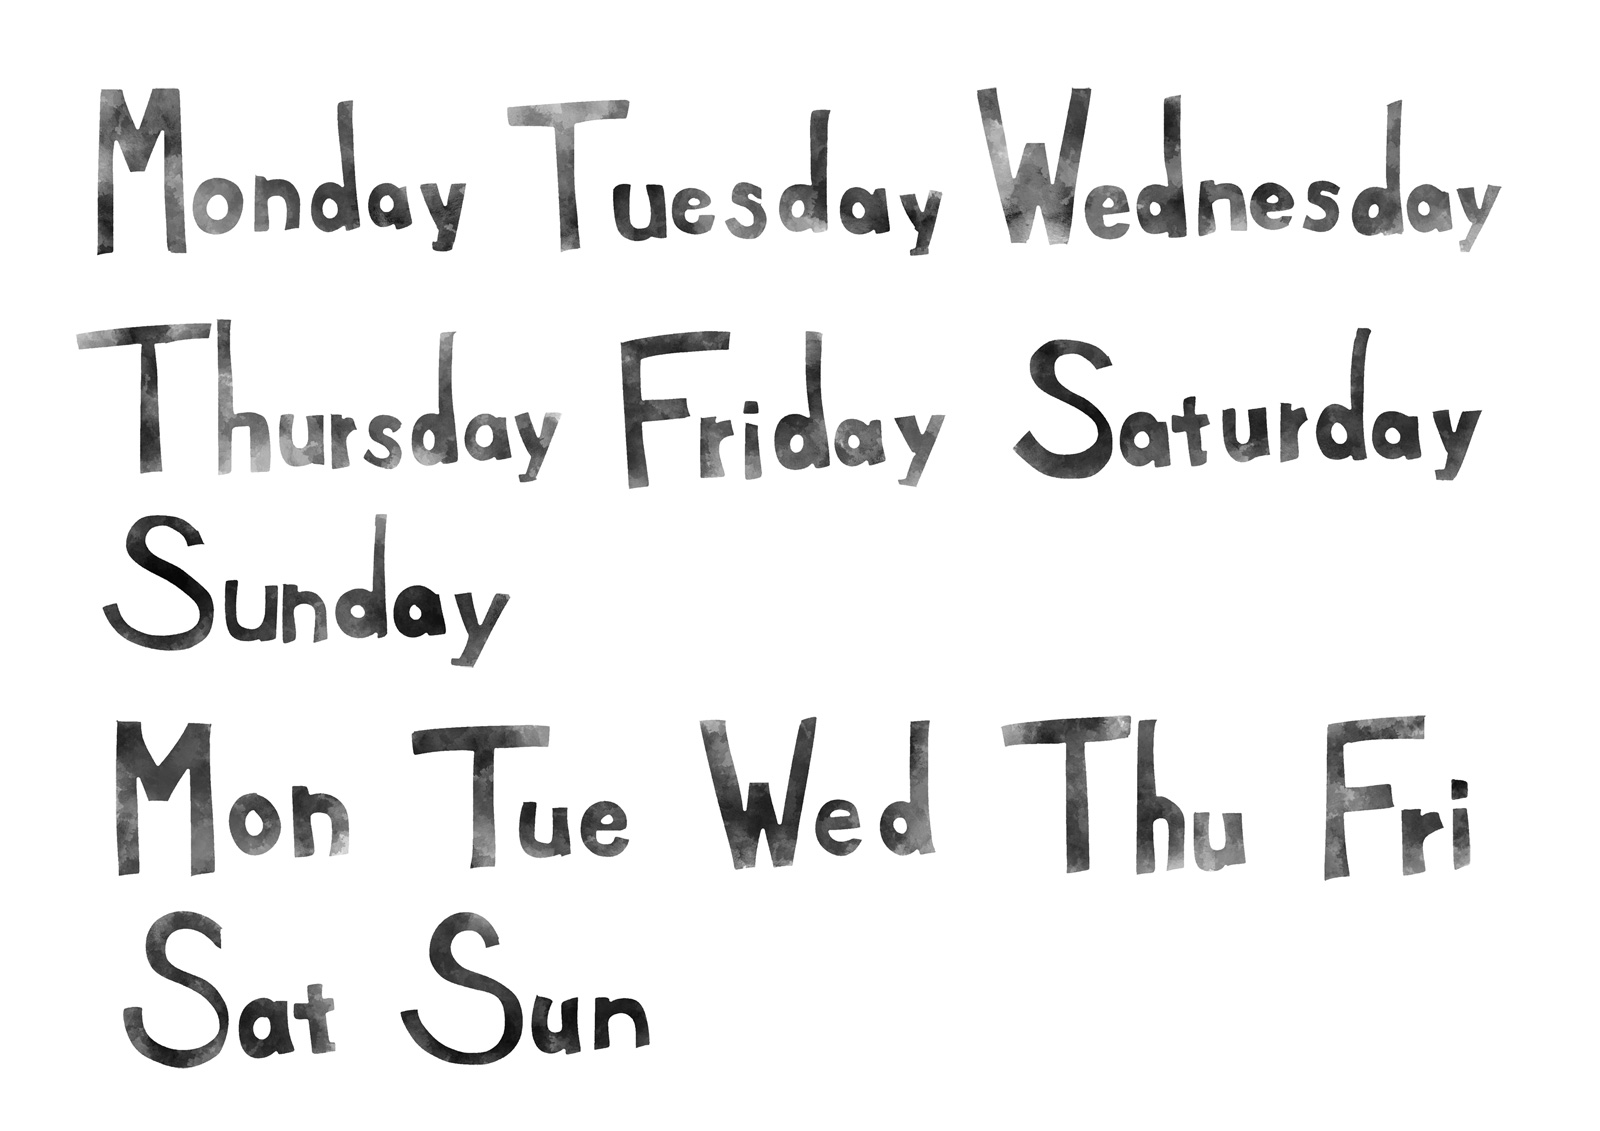 Monday Tuesday Wednesday
Thursday Friday Saturday
Sunday
Mon Tue Wed Thu Fri
Sat Sun